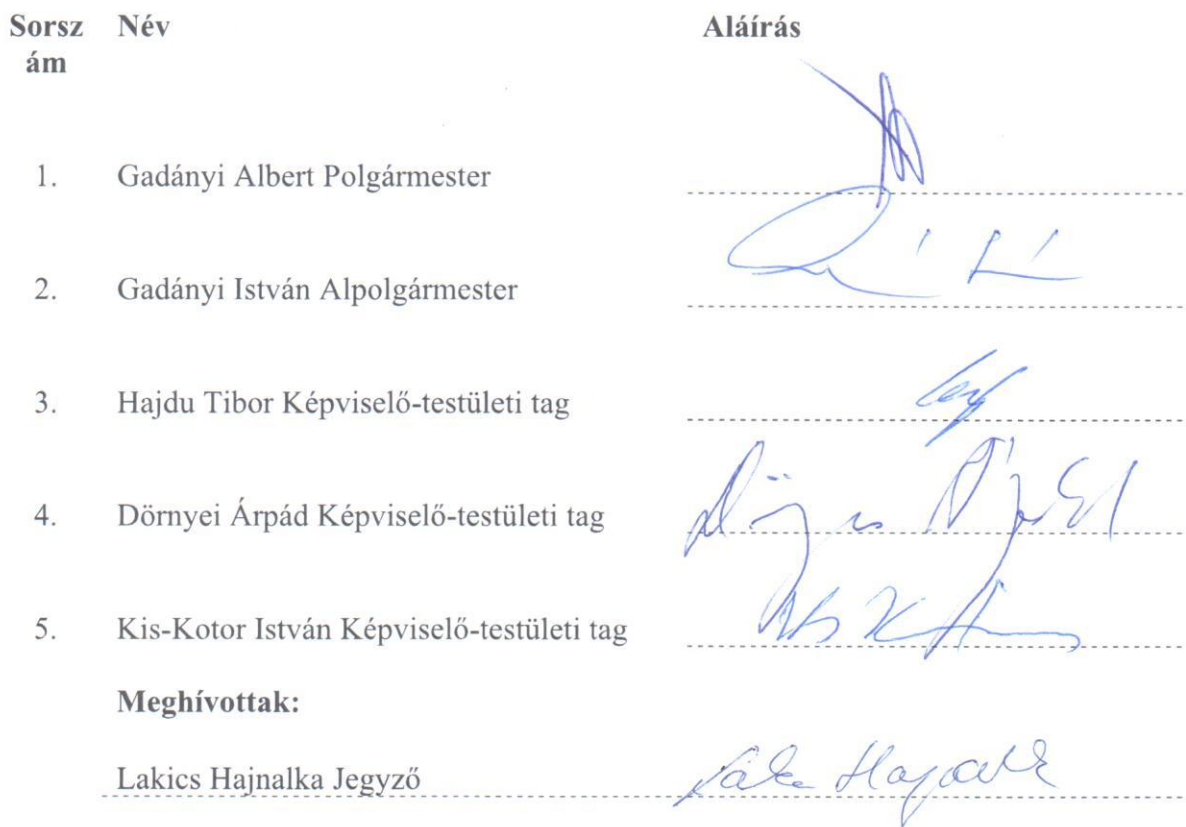 Sorsz Név Aláírás
ám
1. Gadányi Albert Polgármester
2. Gadányi István Alpolgármester
3. Hajdu Tibor Képviselő-testületi tag
4. Dörnyei Árpád Képviselő-testületi tag
5. Kis-Kotor István Képviselő-testületi tag
Meghívottak:
Lakics Hajnalka Jegyző